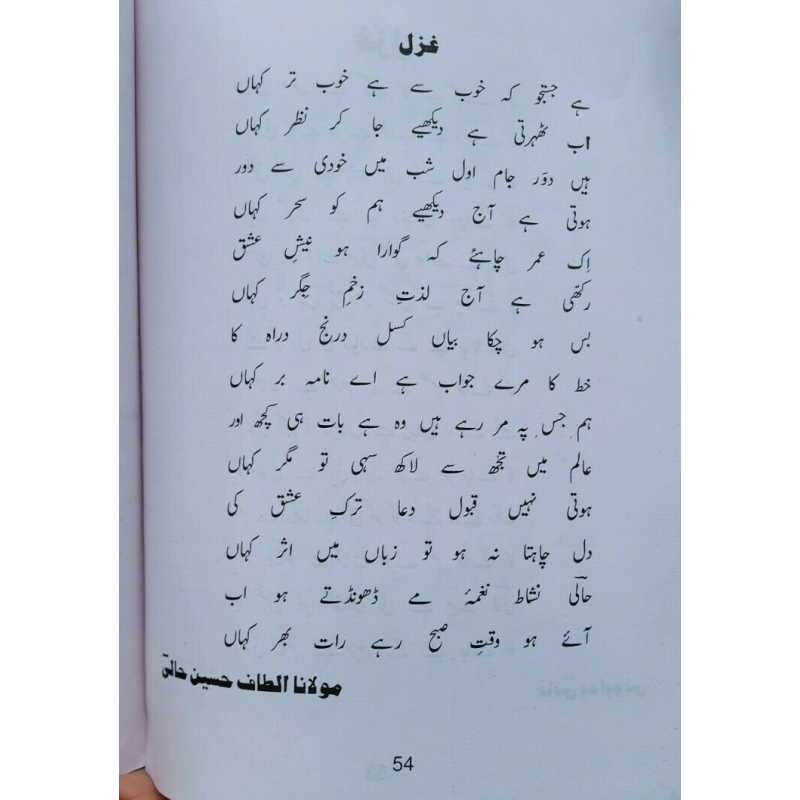 غزل
ہے جستجو کہ خوب سے ہے خوب تر کہاں
اب ٹھہرتی ہے دیکھیے جا کر نظر کہاں
ہیں دوَر جام اول شب میں خودی سے دور
ہوتی ہے آج دیکھیے ہم کو سحر کہاں
اِک عمر چاہئے کہ گوارا ہو نیشِ عشق
رکھّی ہے آج لذتِ زخمِ جِگر کہاں
بس ہو چکا بیاں کسل درنج دراہ کا
خط کا مرے جواب ہے اے نامہ بر کہاں
ہم جس پہ مر رہے ہیں وہ ہے بات ہی کچھ اور
عالم میں تجھ سے لاکھ سہی تو مگر کہاں
ہوتی نہیں قبول دعا ترکِ عشق کی
دل چاہتا نہ ہو تو زباں میں اثر کہاں
حالیؔ نشاط نغمۂ مے ڈھونڈتے ہو اب
آئے ہو وقتِ صبح رہے رات بھر کہاں
مولانا الطاف حسین حالیؔ
54